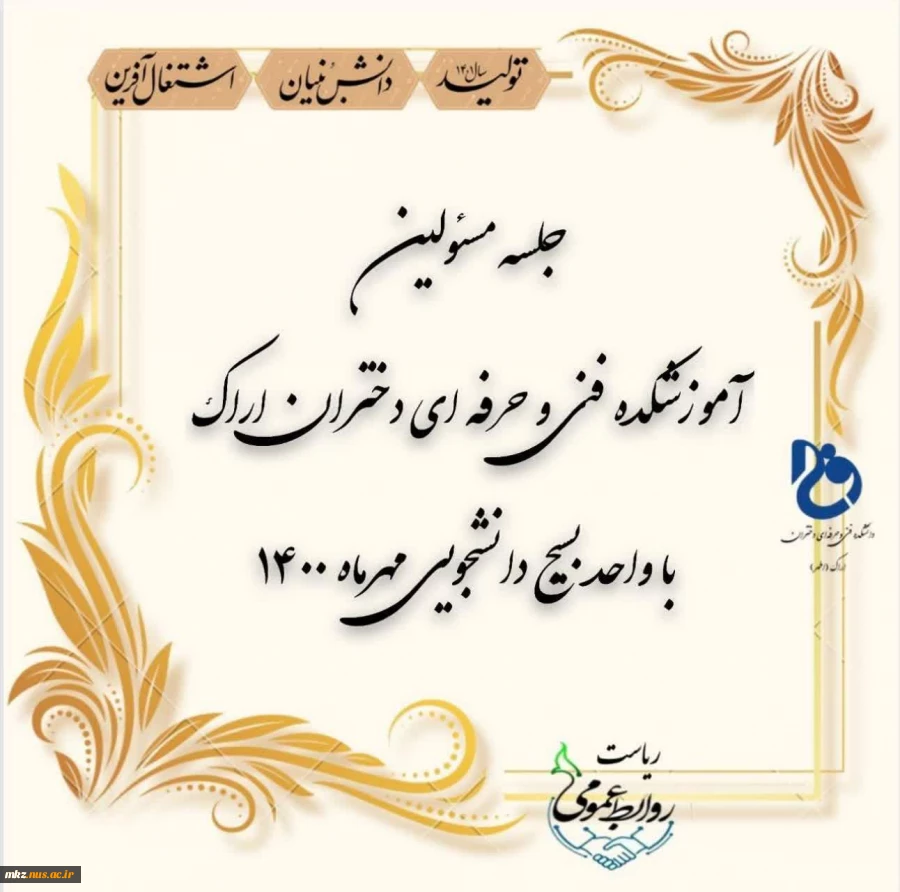 تولید سال ۱۴۰۱ دانش بنیان اشتغال آفرین
جلسه مسئولین
آموزشکده فنی و حرفه ای دختران اراک
با واحد بسیج دانشجویی مهرماه ۱۴۰۰
دانشکده فنی و حرفه ای دختران
اراک (اطهر)
ریاست
روابط عمومی
mkz.nus.ac.ir